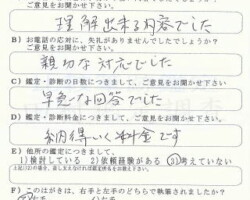 ご意見をお聞かせ下さい
理解出来る内容でした
B) お電話の応対に、失礼がありませんでしたでしょうか?
ご意見をお聞かせ下さい。
親切な対応でした
C) 鑑定・診断の日数につきまして、ご意見をお聞かせ下さい
早急な回答でした
D) 鑑定・診断料金につきまして、ご意見をお聞かせ下さい。
納得いく料金です
E) 他所の鑑定につきまして、
1) 検討している 2) 依頼経験がある 3) 考えていない
F) このはがきは、右手と左手のどちらで執筆されましたか?